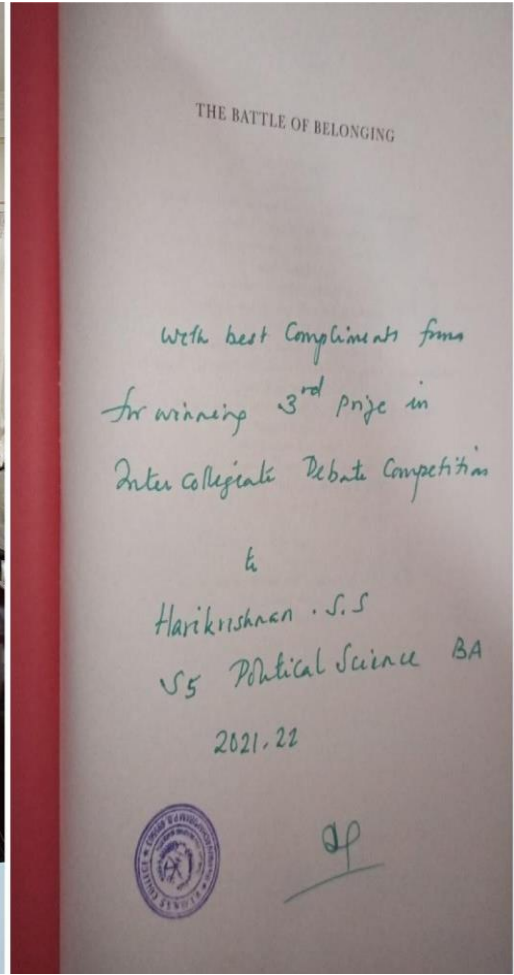 THE BATTLE OF BELONGING
With best Compliments from
for winning 3rd Prize in
Inter collegiate Debate Competition
to
Harikrishnan . S.S
S5 Political Science BA
2021.22
COLLEGE